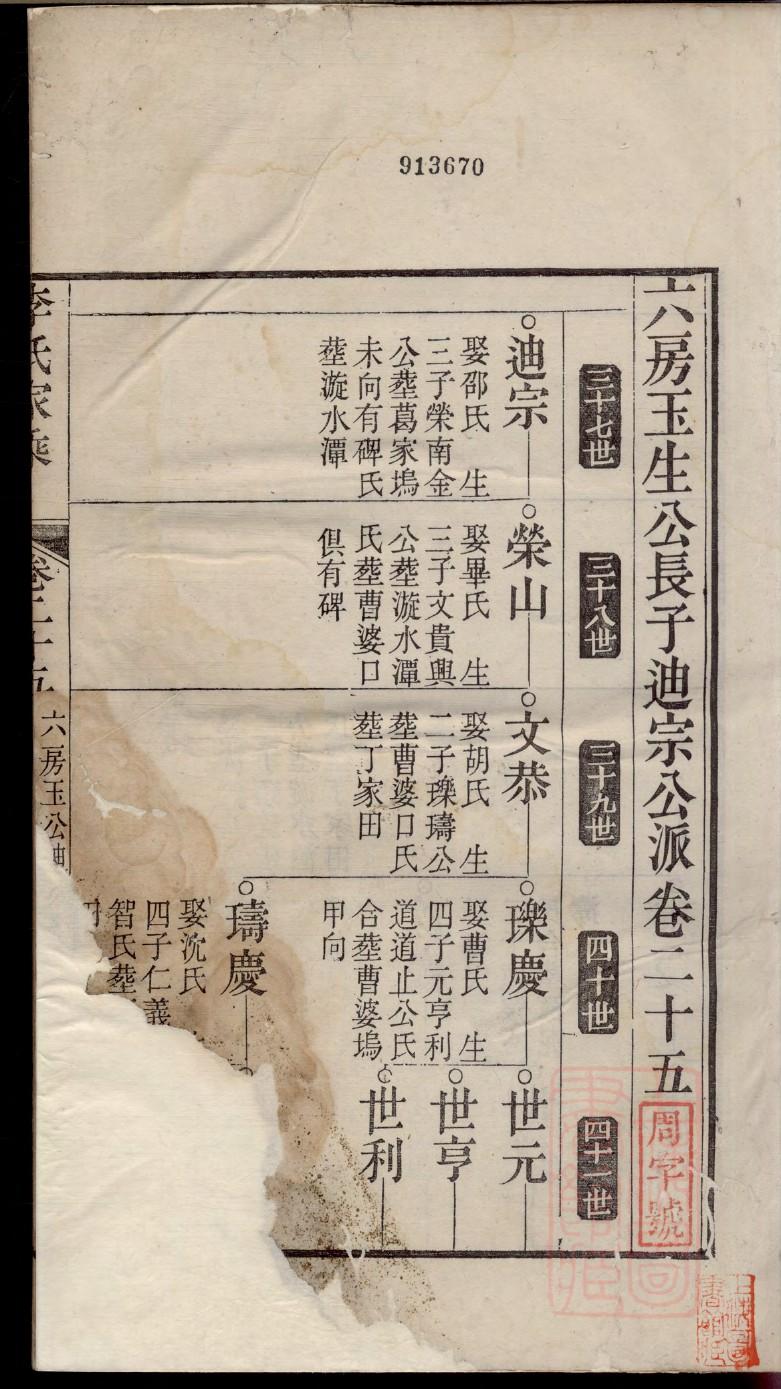 913670
六房玉生公長子迪宗公派卷二十五
周字號
三十七世
三十八世
三十九世
四十世
四十一世
迪宗
娶邵氏　生
三子榮南金
公塟葛家塢
未向有碑氏
塟漩水潭
榮山
娶畢氏　生
三子文貴興
公塟漩水潭
氏塟曹婆口
俱有碑
文恭
娶胡氏　生
二子瓅璹公
塟曹婆口氏
塟丁家田
瓅慶
娶曹氏　生
四子元亨利
道道止公氏
合塟曹婆塢
甲向
世元
世亨
世利
璹慶
娶沈氏
四子仁義
智氏塟
李氏家乘
卷二十五
六房玉公